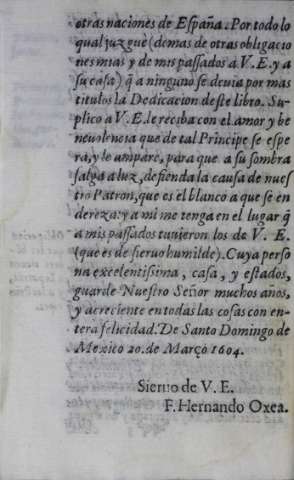 otras naciones de España. Por todo lo
qual juzguè (demas de otras obligacio
nes mias y de mis passados a V. E. y a
su casa) q̃ a ninguno se deuia por mas
titulos la Dedicacion deste libro. Su-
plico a V. E. le reciba con el amor y be
neuolencia que de tal Principe se espe
ra, y le ampare, para que a su sombra
salga a luz, defienda la causa de nues
tro Patron, que es el blanco a que se en
dereza: y a mi me tenga en el lugar q̃
a mis passados tuuieron los de V. E.
(que es de sieruo humilde). Cuya perso
na excelentissima, casa, y estados,
guarde Nuestro Señor muchos años,
y acreciente en todas las cosas con en-
tera felicidad. De Santo Domingo de
Mexico 20. de Março 1604.
Sieruo de V. E.
F. Hernando Oxea.